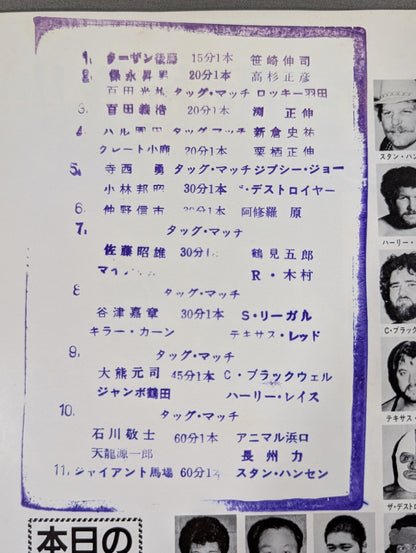 1. ターザン後藤 15分1本 笹崎伸司
2. 保永昇男 20分1本 高杉正彦
百田光雄 タッグ・マッチ ロッキー羽田
3. 百田義浩 20分1本 渕 正伸
4. ハル園田 タッグマッチ 新倉史祐
グレート小鹿 20分1本 栗栖正伸
5. 寺西 勇 タッグ・マッチ ジプシー・ジョー
小林邦昭 30分1本 ザ・デストロイヤー
6. 仲野信市 30分1本 阿修羅 原
7. タッグ・マッチ
佐藤昭雄 30分1 鶴見五郎
R・木村
8 タッグ・マッチ
谷津嘉章 30分1本 S・リーガル
キラー・カーン テキサス・レッド
9. タッグ・マッチ
大熊元司 45分1本 C・ブラックウェル
ジャンボ鶴田 ハーリー・レイス
10. タッグ・マッチ
石川敬士 60分1本 アニマル浜口
天龍源一郎 長州 力
11. ジャイアント馬場 60分1本 スタン・ハンセン
スタン・ハン
ハーリー・
C・ブラック
テキサス・
ザ・デストロ
本日の